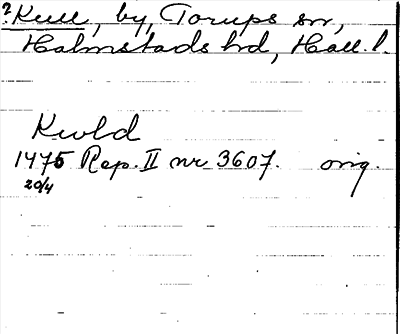 ? Kull, by, Torups sn,
Halmstads hd, Hall. l.
Kwld
1475 Rep. II nr 3607. orig.
20/4